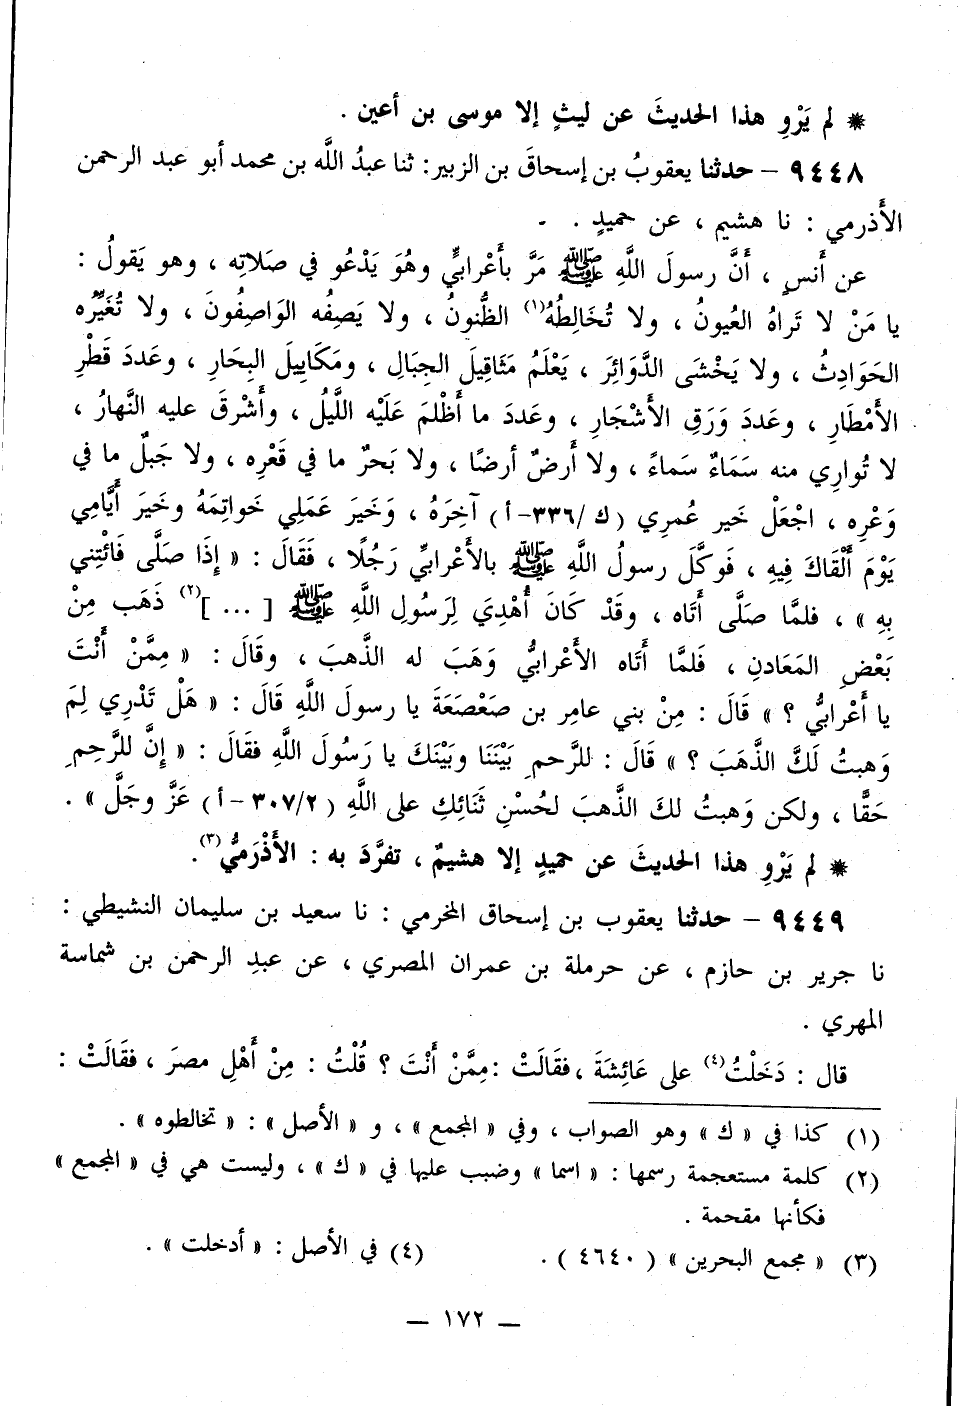 * لم يَرْوِ هذا الحديثَ عن ليثٍ إلا موسى بن أعين .
٩٤٤٨ – حدثنا يعقوبُ بن إسحاقَ بن الزبير: ثنا عبدُ اللَّه بن محمد أبو عبد الرحمن
الأَذرمي : نا هشيم ، عن حميدٍ .
عن أَنسٍ ، أَنَّ رسولَ اللَّهِ ﷺ مَرَّ بأَعْرابيٍّ وهُوَ يَدْعُو في صَلاتِه ، وهو يَقولُ :
يا مَنْ لا تَراهُ العيونُ ، ولا تُخَالِطُهُ(١) الظُّنونُ ، ولا يَصِفُه الوَاصِفُونَ ، ولا تُغَيِّرُه
الحَوَادِثُ ، ولا يَخْشَى الدَّوَائِرَ ، يَعْلَمُ مَثَاقِيلَ الجِبَالِ ، ومَكَايِيلَ البِحَارِ ، وعَددَ قَطْرِ
الأَمْطَارِ ، وعَددَ وَرَقِ الأَشْجَارِ ، وعَددَ ما أَظْلمَ عَلَيْه اللَّيلُ ، وأَشْرقَ عليه النَّهارُ ،
لا تُوارِي منه سَمَاءٌ سَماءً ، ولا أَرضٌ أرضًا ، ولا بَحرٌ ما في قَعْرِه ، ولا جَبلٌ ما في
وَعْرِه ، اجْعَلْ خَير عُمرِي (ك/٣٣٦-أ) آخِرَهُ ، وَخَيرَ عَمَلِي خَواتِمَهُ وخَيرَ أَيَّامِي
يَوْمَ أَلْقَاكَ فِيهِ ، فَوكَّلَ رسولُ اللَّهِ ﷺ بالأَعْرابيِّ رَجُلًا ، فَقَالَ : « إِذَا صَلَّى فَائْتِني
بِهِ » ، فلمَّا صَلَّى أَتَاه ، وقَدْ كَانَ أُهْدِيَ لِرَسُولِ اللَّهِ ﷺ [ ... ](٢) ذَهَب مِنْ
بَعْضِ المَعَادنِ ، فَلمَّا أَتَاه الأَعْرابيُّ وَهَبَ له الذَّهبَ ، وقَالَ : « مِمَّنْ أَنْتَ
يا أَعْرابيُّ ؟ » قَالَ : مِنْ بني عامِر بن صَعْصَعَةَ يا رسولَ اللَّهِ قَالَ : « هَلْ تَدْرِي لِمَ
وَهبتُ لَكَ الذَّهَبَ ؟ » قَالَ : للرَّحمِ بَيْنَنَا وبَيْنَكَ يا رَسُولَ اللَّهِ فقَالَ : « إِنَّ للرَّحِمِ
حَقًّا ، ولكن وَهبتُ لكَ الذَّهبَ لحُسْنِ ثَنَائِكِ على اللَّهِ (٣٠٧/٢ -أ) عَزَّ وجَلَّ » .
* لم يَرْوِ هذا الحديثَ عن حميدٍ إلا هشيمٌ ، تفرَّدَ به : الأَذْرَمُّي(٣).
٩٤٤٩ – حدثنا يعقوب بن إسحاق المخرمي : نا سعيد بن سليمان النشيطي :
نا جرير بن حازم ، عن حرملة بن عمران المصري ، عن عبدِ الرحمن بن شماسة
المهري .
قال : دَخَلْتُ(٤) على عَائِشَةَ ، فقَالَتْ :مِمَّنْ أَنْتَ ؟ قُلْتُ : مِنْ أَهْلِ مصرَ ، فقَالَتْ :
(١) كذا في « ك » وهو الصواب ، وفي « المجمع » ، و « الأصل » : « تخالطوه » .
(٢) كلمة مستعجمة رسمها : « اسما » وضبب عليها في « ك » ، وليست هي في « المجمع »
فكأنها مقحمة .
(٣) « مجمع البحرين » ( ٤٦٤٠ ) . (٤) في الأصل : « أدخلت » .
— ١٧٢ —